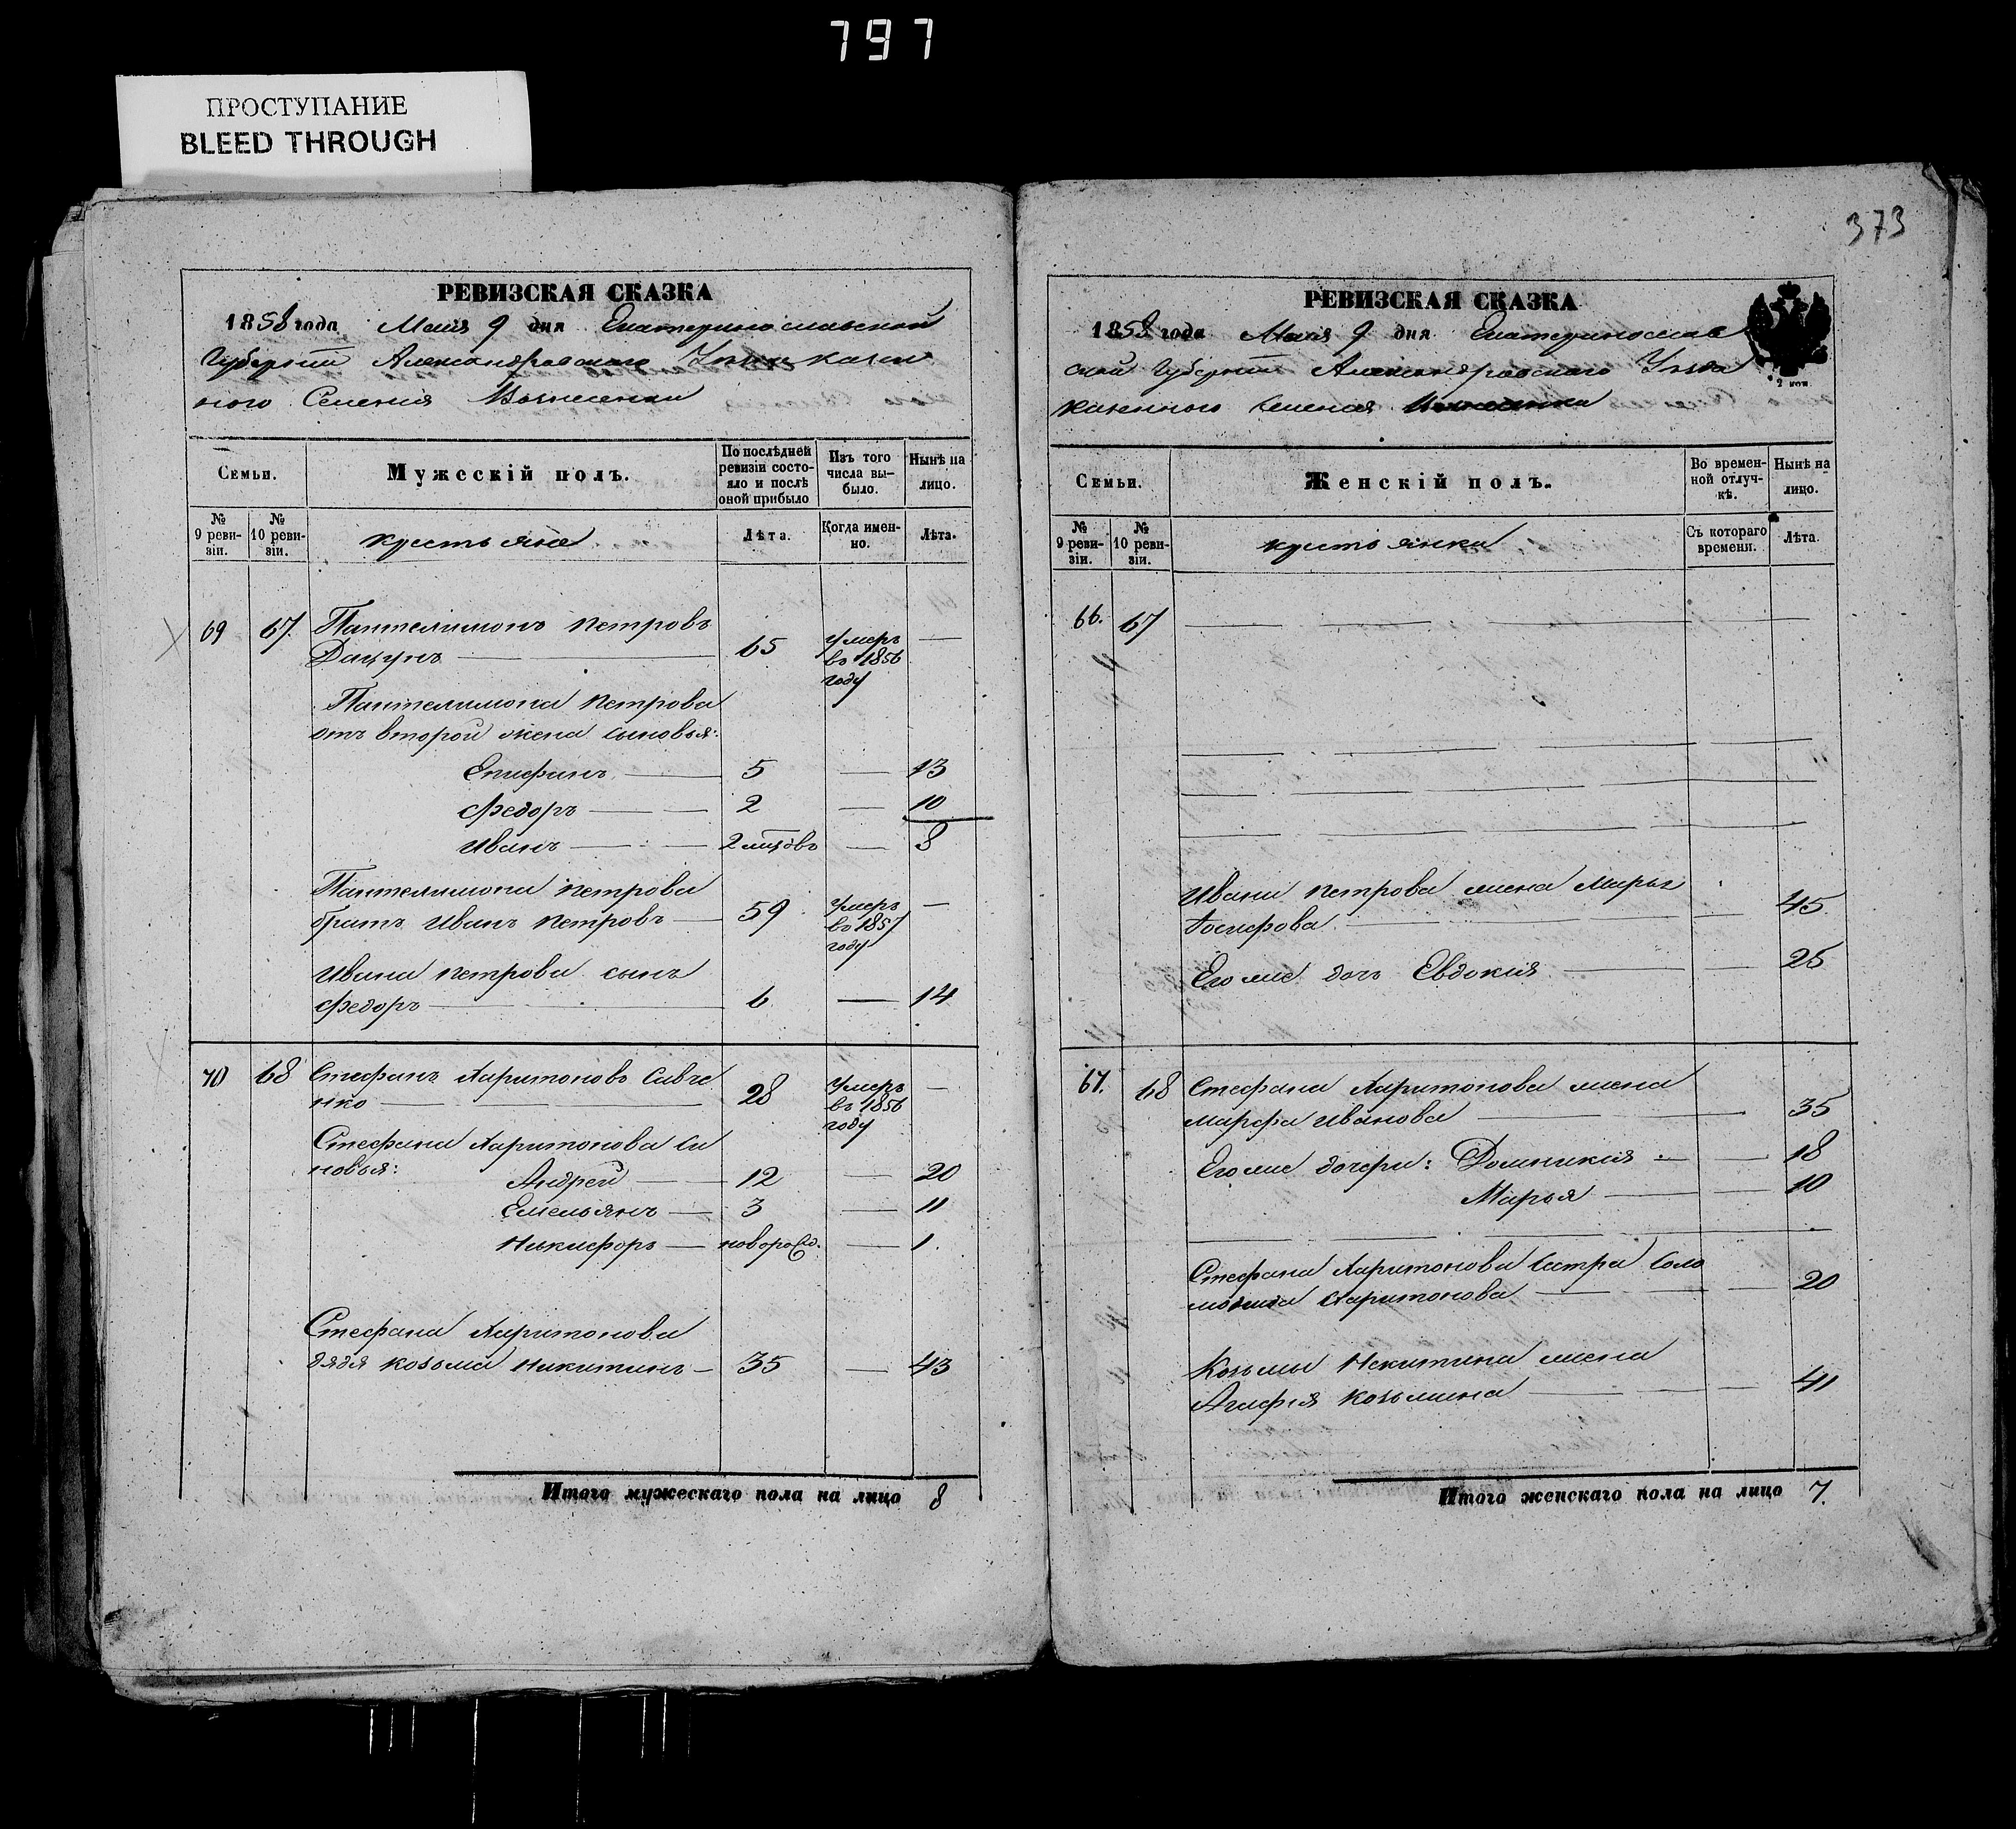 797
ПРОСТУПАНИЕ
BLEED THROUGH
РЕВИЗСКАЯ СКАЗКА
1858 года Маия 9 дня Екатеринославской
Губернии Александровскаго Уѣзда казен
ного Селения Вознесенки
Семьи.
Мужескій полъ.
По послѣдней
ревизіи состо-
яло и послѣ
оной прибыло
Изъ того
числа вы-
было.
Нынѣ на
лицо.
№
9 реви-
зіи.
№
10 реви-
зіи.
крестьяне
Лѣта.
Когда имен-
но.
Лѣта.
69 67. Пантелимонъ Петровъ
Дацунъ 65 Умеръ
въ 1856
году
Пантелимона Петрова
отъ второй жены сыновья:
Епифанъ 5 13
Федоръ 2 10
Иванъ 2 8
Пантелимона Петрова
братъ Иванъ Петровъ 59 Умеръ
въ 1857
году
Ивана Петрова сынъ
Федоръ 6 14
70 68 Стефанъ Харитоновъ Савче
нко 28 Умеръ
въ 1856
году
Стефана Харитонова сы
новья:
Андрей 12 20
Емельянъ 3 11
Никифоръ новорожд. 1.
Стефана Харитонова
дядя Козьма Никитинъ 35 43
Итого мужескаго пола на лицо 8
373
РЕВИЗСКАЯ СКАЗКА
1858 года Маия 9 дня Екатеринослав
ской Губернии Александровскаго Уѣзда
Казенного Селения Вознесенки
2 коп
Семьи.
Женскій полъ.
Во времен-
ной отлуч-
кѣ.
Нынѣ на
лицо.
№
9 реви-
зіи.
№
10 реви-
зіи.
крестьянки
Съ котораго
времени.
Лѣта.
66. 67
Ивана Петрова жена Марья
Иосифова 45.
Его же дочь Евдокия 26
67. 68 Стефана Харитонова жена
Марфа Иванова 35
Его же дочери: Домникия 18
Марья 10
Стефана Харитонова сестра Соло
монида Харитонова 20
Козьмы Никитина жена
Агафия Козьмина 41
Итого женскаго пола на лицо 7.